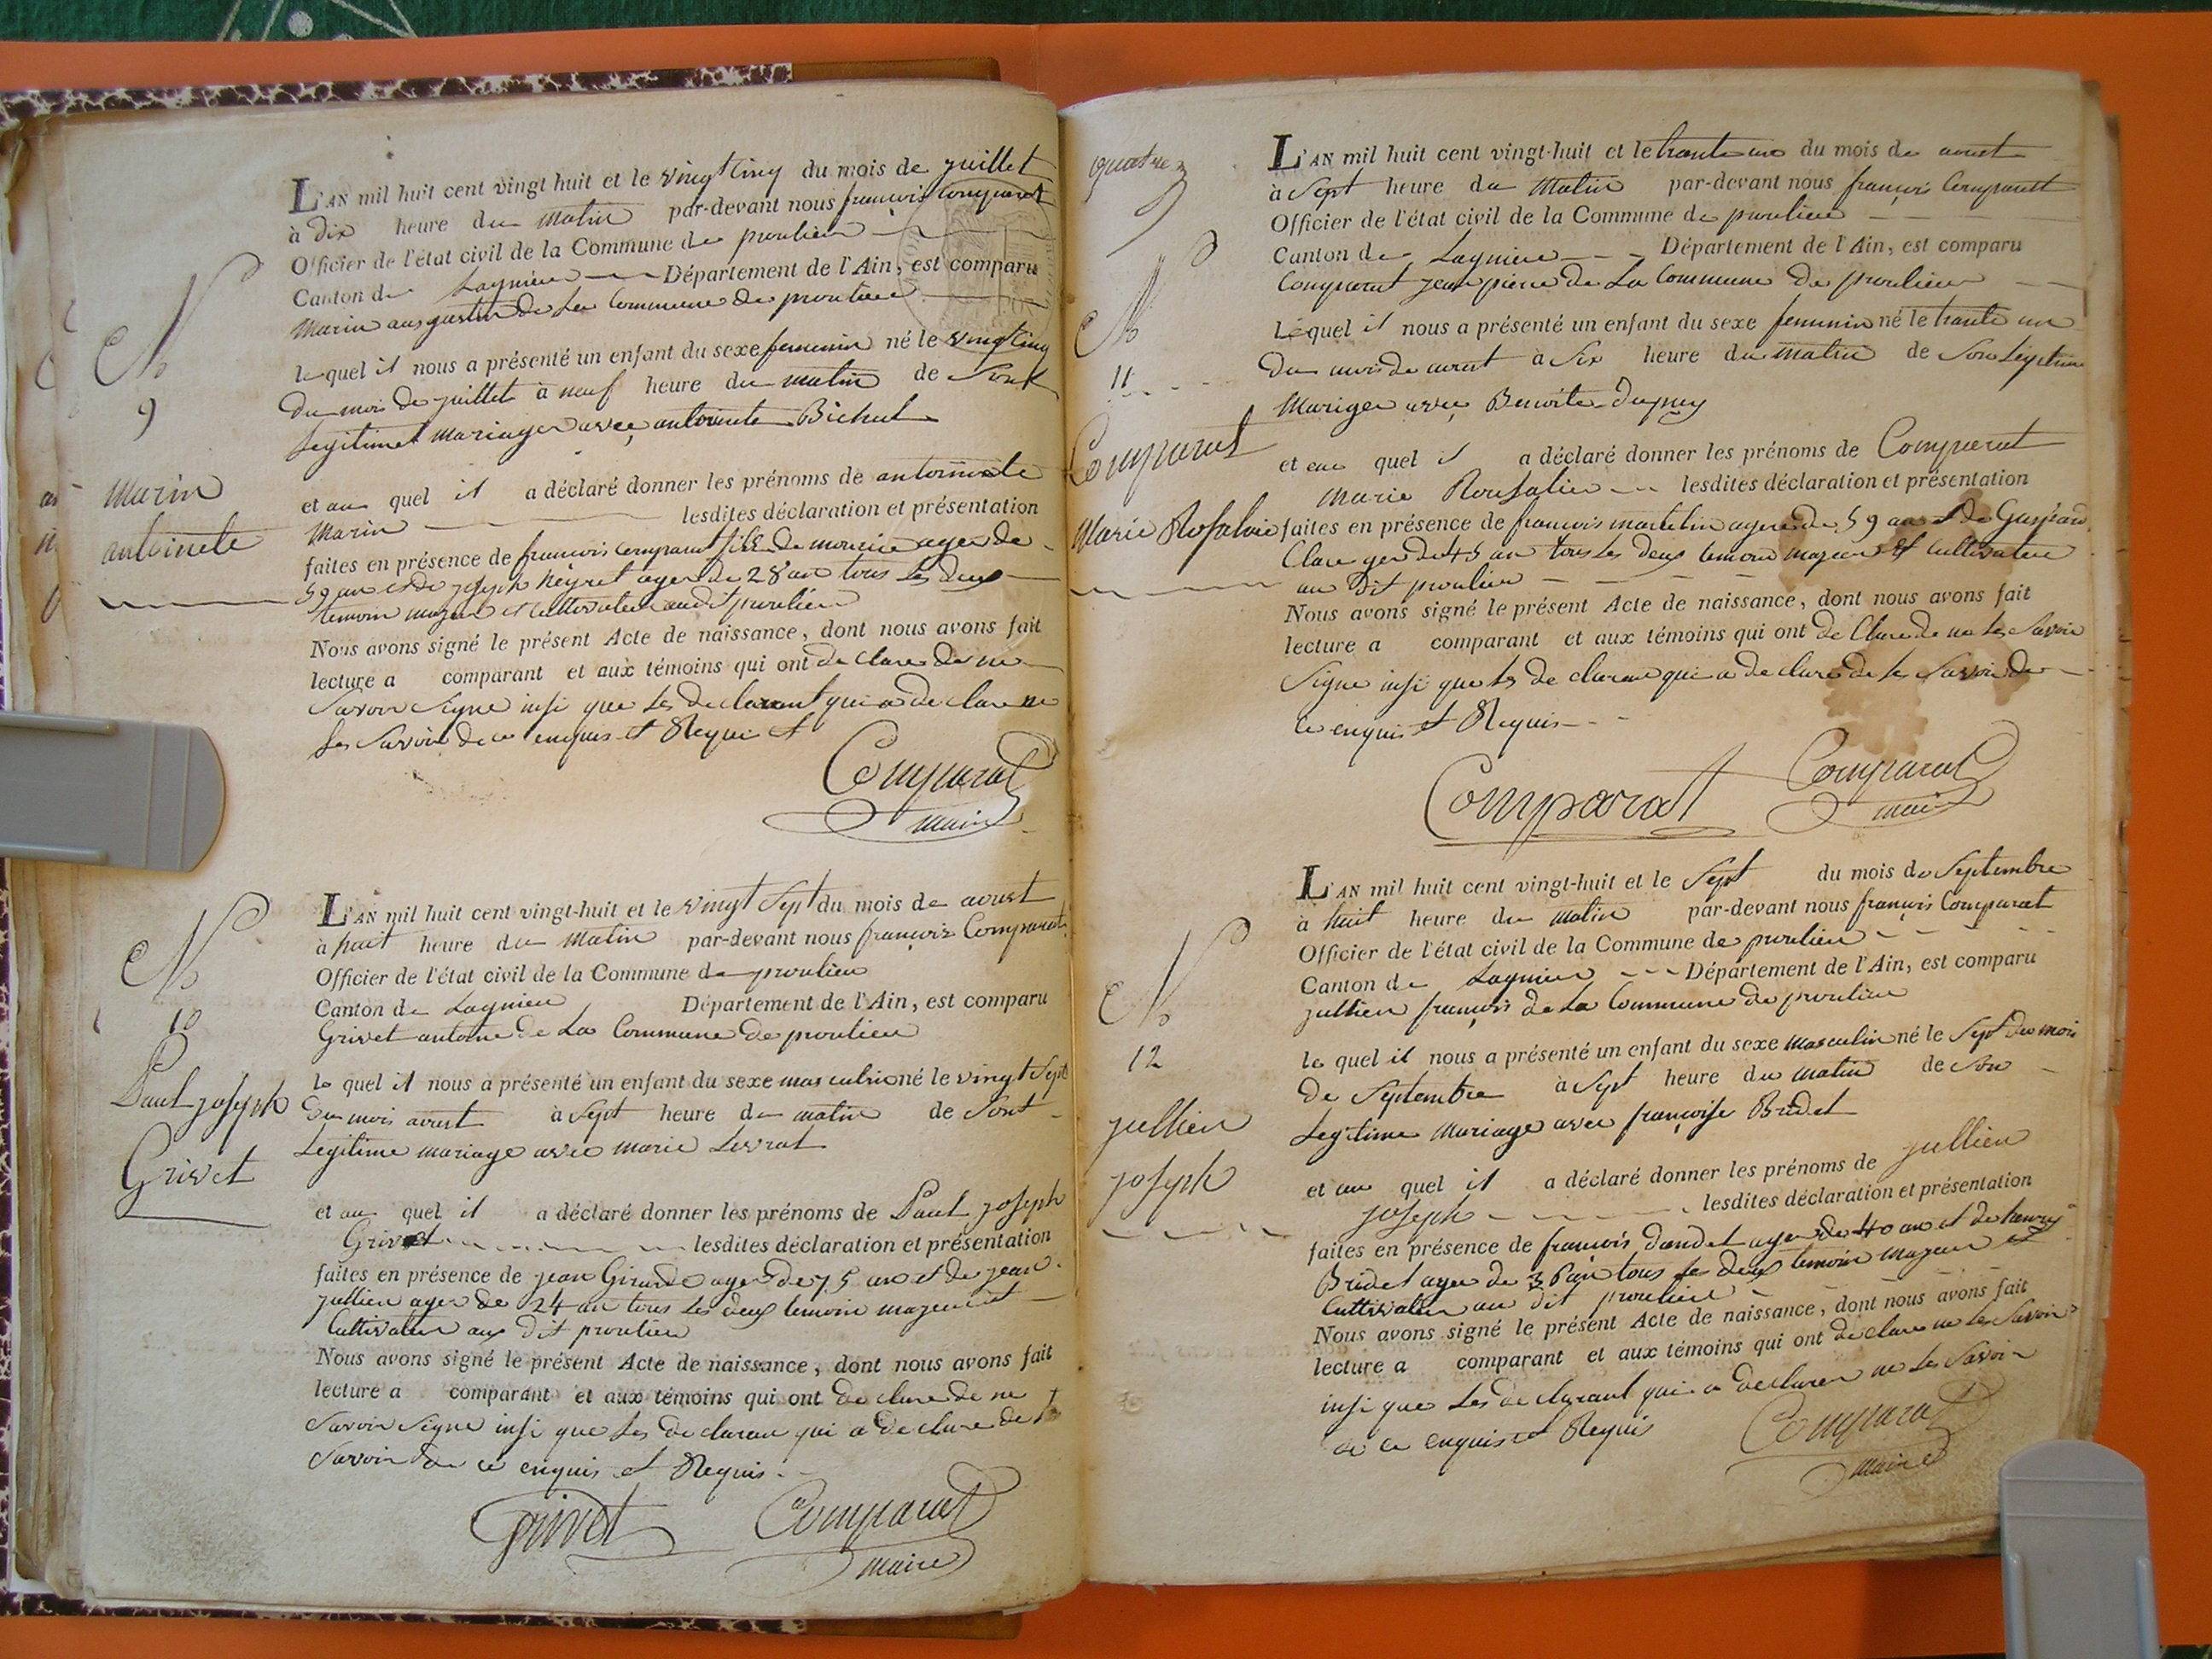 N
9
Marin
antoinete
L'AN mil huit cent vingt huit et le vingt cinq du mois de juillet
à dix heure du matin par-devant nous françois Comparat
Officier de l'état civil de la Commune de proulieu
Canton de Lagnieu Département de l'Ain, est comparu
Marin augustin de La Commune de proulieu
lequel il nous a présenté un enfant du sexe feminin né le vingt cinq
Du mois de juillet à neuf heure du matin de Sont
Legitimet Mariager avec antoinete Bichet
et au quel il a déclaré donner les prénoms de antoinete
Marin lesdites déclaration et présentation
faites en présence de francois comparat fils de ager de
59 an et de joseph ager de 28 an tous Les deux
temoin majeur et Cultivateur audit proulieu
Nous avons signé le présent Acte de naissance, dont nous avons fait
lecture a comparant et aux témoins qui ont de clare de ne
Savoir Signe insi que Les De clarant qui a de clare ne
Les Savoir de ce enquis et Requi et
Comparat
maire
N
10
Paul joseph
Grivet
L'AN mil huit cent vingt-huit et le vingt Sept du mois de aoust
à huit heure du Matin par-devant nous françois Comparat
Officier de l'état civil de la Commune de proulieu
Canton de Lagnieu Département de l'Ain, est comparu
Grivet antoine de La Commune de proulieu
le quel il nous a présenté un enfant du sexe masculin né le vingt Sept
Du mois aoust à Sept heure du matin de Sont
Legitime mariage avec marie Levrat
et au quel il a déclaré donner les prénoms de Paul joseph
Grivet lesdites déclaration et présentation
faites en présence de jean Girard ager de 75 an et de jean
jullien ager de 24 an tous Les deux temoin majeur et
Cultivateur au Dit proulieu
Nous avons signé le présent Acte de naissance, dont nous avons fait
lecture a comparant et aux témoins qui ont de clare de ne
Savoir Signe insi que Les de claran qui a de clare de Le
Savoir de ce enquis et Requis
Grivet Comparat
maire
quatre
N
11
Comparat
Marie Rosalie
L'AN mil huit cent vingt-huit et le trante un du mois de aoust
à Sept heure du Matin par-devant nous françois Comparat
Officier de l'état civil de la Commune de proulieu
Canton de Lagnieu Département de l'Ain, est comparu
Comparat jean pierre de La Commune de proulieu
Lequel il nous a présenté un enfant du sexe feminin né le trante un
Du mois de aoust à Six heure du matin de Son Legitime
Mariger avec Benoite Dupuy
et au quel il a déclaré donner les prénoms de Comparat
Marie Rousalie lesdites déclaration et présentation
faites en présence de francois martelin ager de 59 an et de Gaspard
Clare ger de 45 an tous Les deux temoin majeur et Cultivateur
au Dit proulieu
Nous avons signé le présent Acte de naissance, dont nous avons fait
lecture a comparant et aux témoins qui ont de Clare de ne Les Savoir
Signe insi que Les de claran qui a de clare de Le Savoir de
ce enquis et Requis
Comparat Comparat
maire
N
12
jullien
joseph
L'AN mil huit cent vingt-huit et le Sept du mois de Septembre
à huit heure du matin par-devant nous françois Comparat
Officier de l'état civil de la Commune de proulieu
Canton de Lagnieu Département de l'Ain, est comparu
jullien françois de La Commune de proulieu
le quel il nous a présenté un enfant du sexe masculin né le Sept du mois
de Septembre à Sept heure du matin de Son
Legitime Mariage avec françoise Bridet
et au quel il a déclaré donner les prénoms de jullien
joseph lesdites déclaration et présentation
faites en présence de francois dandet ager de 40 an et de
Bridet ager de tous Les deux temoin majeur et
Cultivateur au dit proulieu
Nous avons signé le présent Acte de naissance, dont nous avons fait
lecture a comparant et aux témoins qui ont de clare ne Les Savoir
insi que Les de clarant qui a declarer ne Les Savoir
de ce enquis et Requis
Comparat
maire